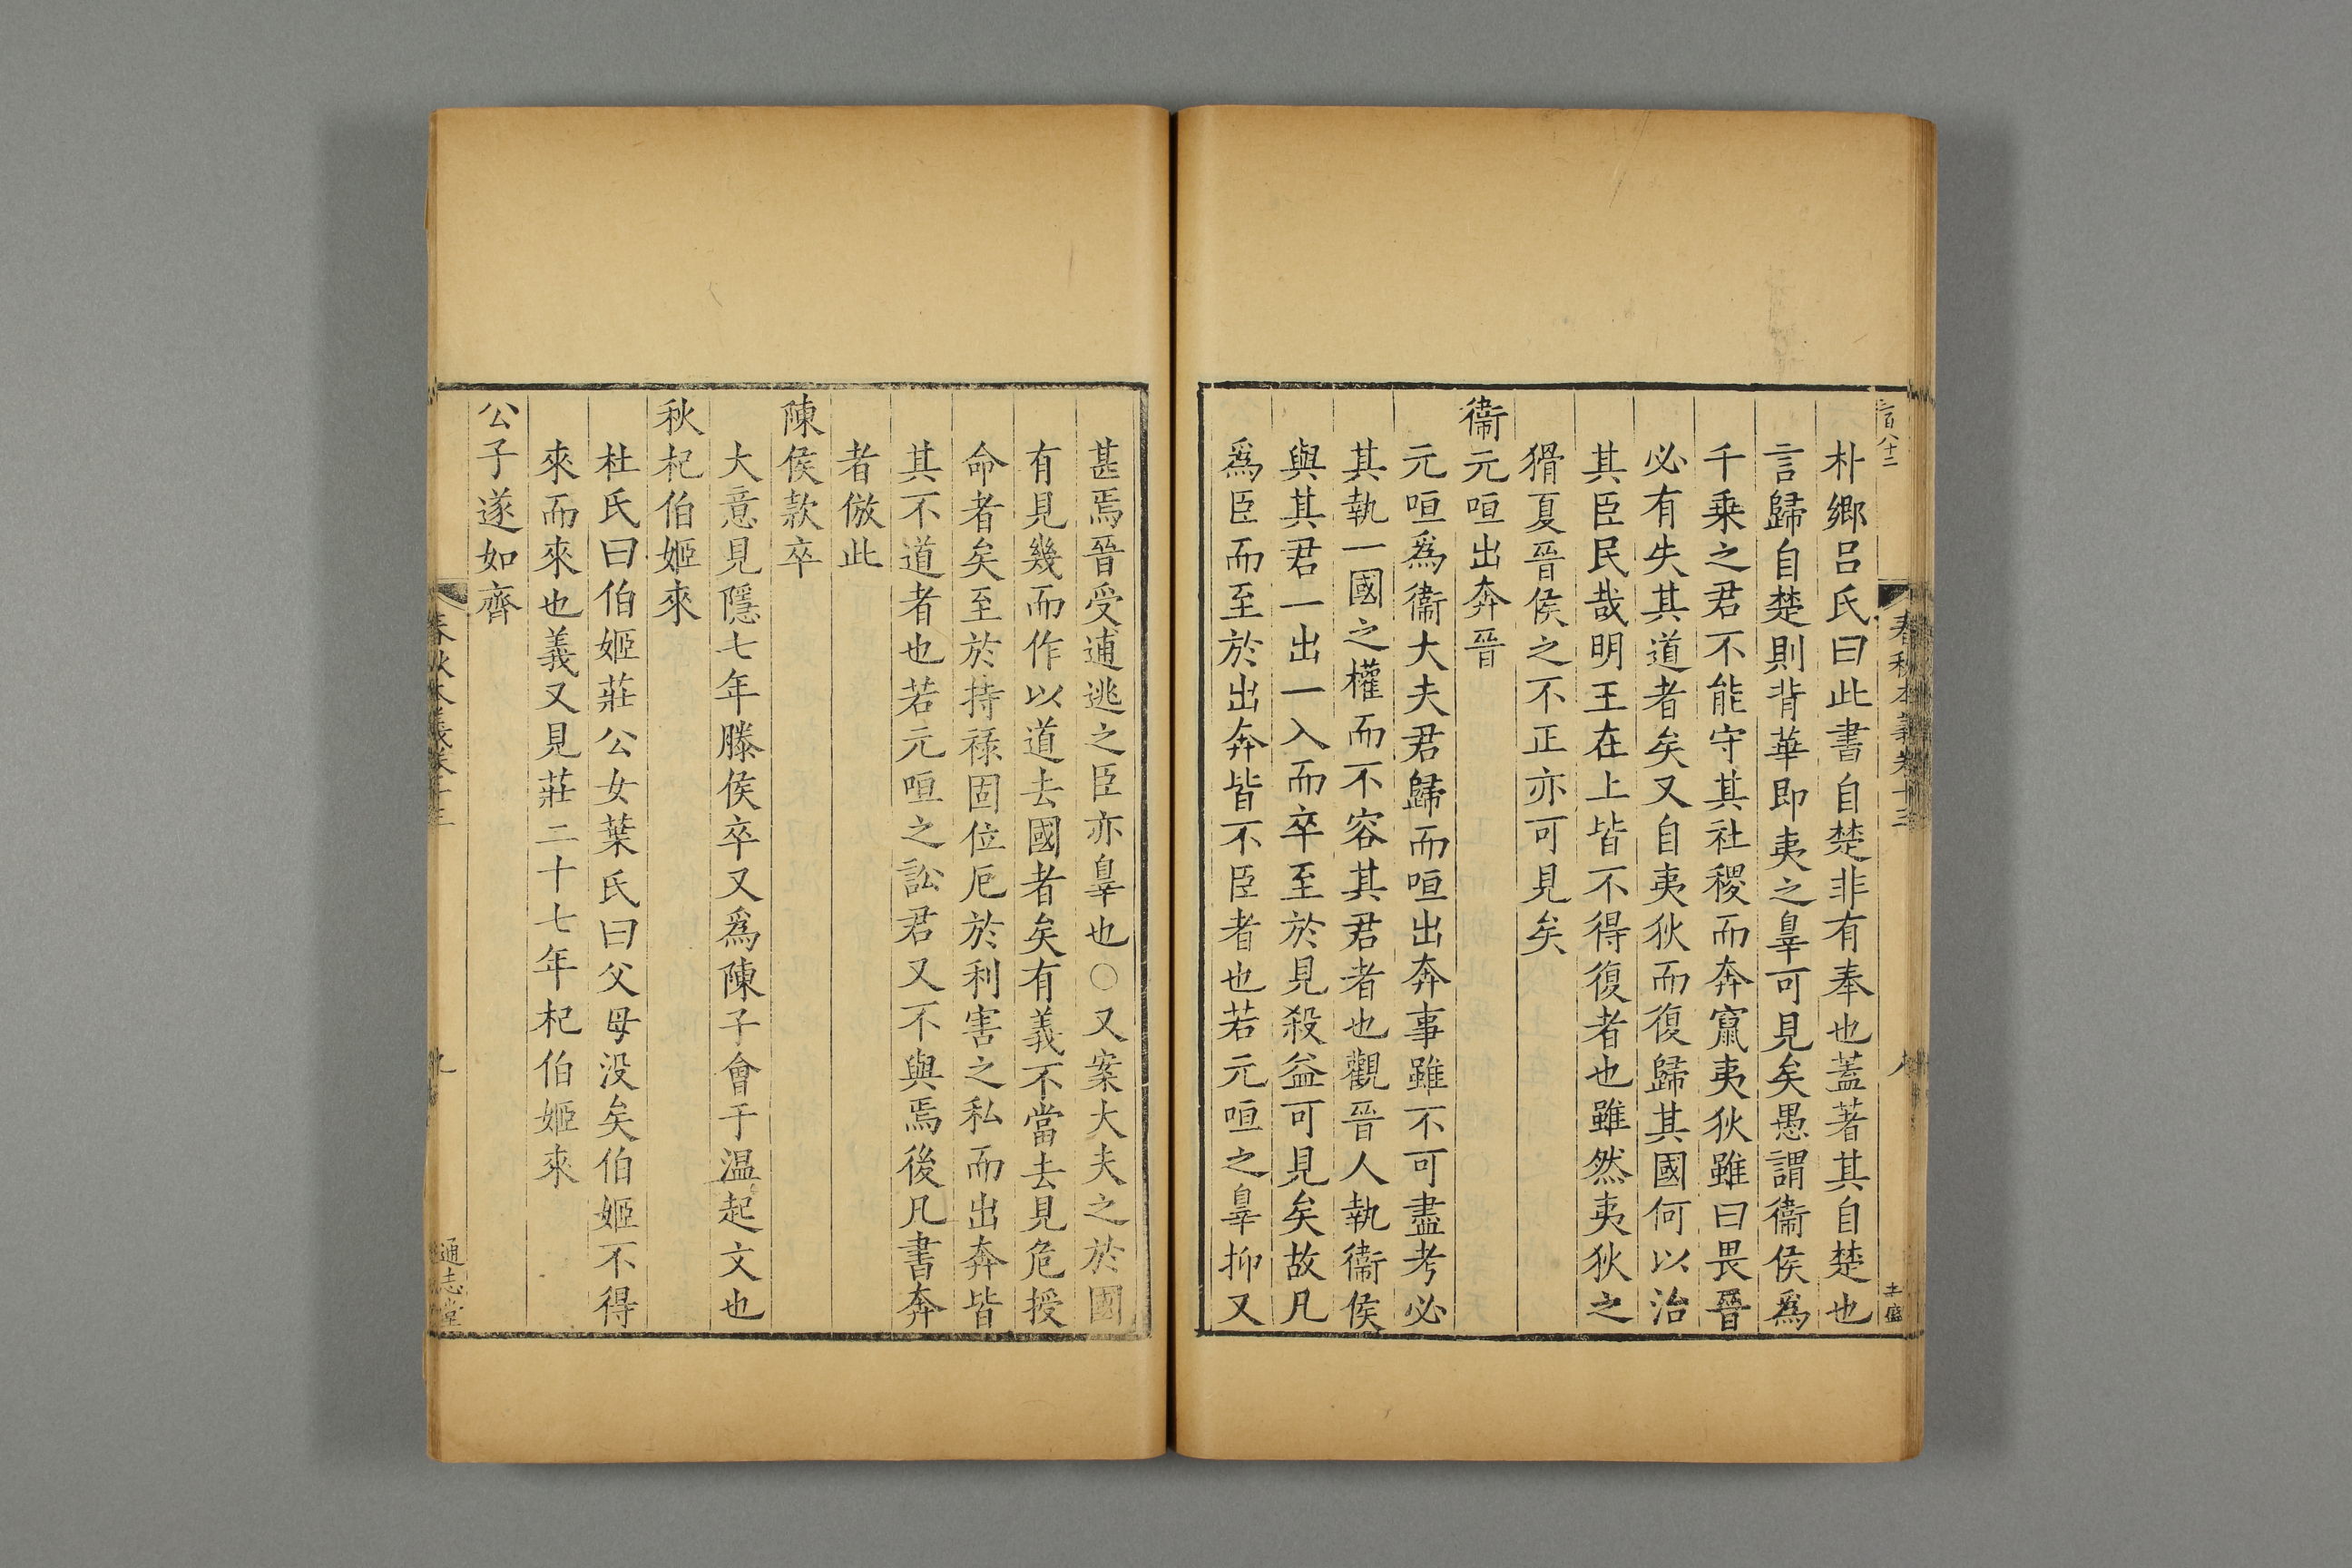 三百八十二
春秋本義卷十三
八
朴鄉呂氏曰此書自楚非有奉也蓋著其自楚也
言歸自楚則背華即夷之辠可見矣愚謂衞侯爲
千乗之君不能守其社稷而奔竄夷狄雖曰畏晉
必有失其道者矣又自夷狄而復歸其國何以治
其臣民哉明王在上皆不得復者也雖然夷狄之
猾夏晉侯之不正亦可見矣
衞元咺出奔晉
元咺爲衞大夫君歸而咺出奔事雖不可盡考必
其執一國之權而不容其君者也觀晉人執衞侯
與其君一出一入而卒至於見殺益可見矣故凡
爲臣而至於出奔皆不臣者也若元咺之辠抑又
甚焉晉受逋逃之臣亦辠也○又案大夫之於國
有見幾而作以道去國者矣有義不當去見危授
命者矣至於持祿固位厄於利害之私而出奔皆
其不道者也若元咺之訟君又不與焉後凡書奔
者倣此
陳侯款卒
大意見隱七年滕侯卒又爲陳子會于温起文也
秋杞伯姬來
杜氏曰伯姬莊公女葉氏曰父母没矣伯姬不得
來而來也義又見莊二十七年杞伯姬來
公子遂如齊
春秋本義卷十三
通志堂